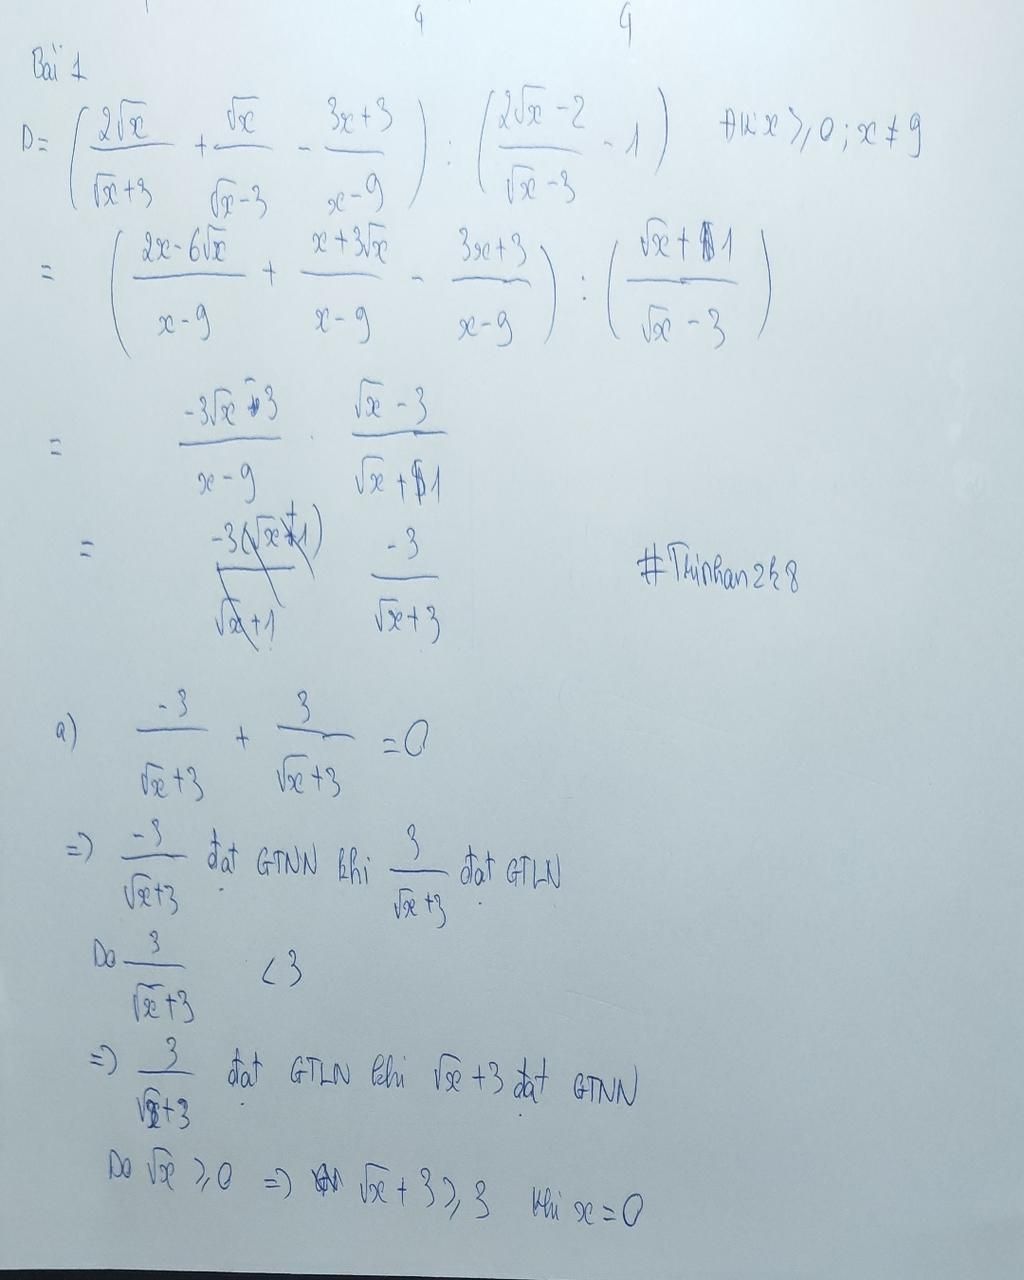 4 4
Bài 1
D = (2√x / √x+3 + √x / √x-3 - 3x+3 / x-9) : (2√x-2 / √x-3 - 1) Đk: x ≥ 0; x ≠ 9
= (2x-6√x / x-9 + x+3√x / x-9 - 3x+3 / x-9) : (√x+1 / √x-3)
= -3√x-3 / x-9 . √x-3 / √x+1
= -3(√x+1) / √x+1 -3 / √x+3
#Thinhan2k8
a) -3 / √x+3 + 3 / √x+3 = 0
=> -3 / √x+3 đạt GTNN khi 3 / √x+3 đạt GTLN
Do 3 / √x+3 < 3
=> 3 / √x+3 đạt GTLN khi √x+3 đạt GTNN
Do √x ≥ 0 => √x+3 ≥ 3 khi x = 0